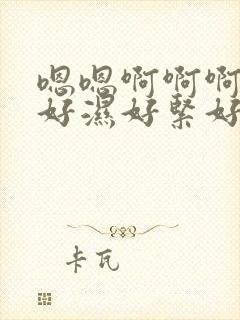 嗯嗯啊啊啊
好濕好緊好
卡瓦